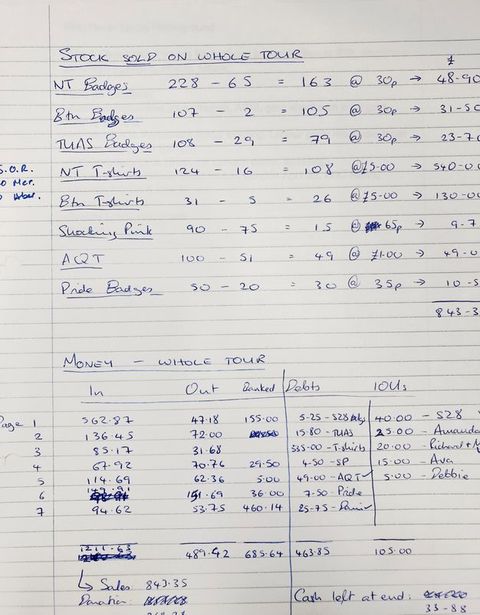 STOCK SOLD ON WHOLE TOUR
£
NT Badges 228 - 65 = 163 @ 30p → 48-90
Btn Badges 107 - 2 = 105 @ 30p → 31-50
TUAS Badges 108 - 29 = 79 @ 30p → 23-70
S.O.R. NT T-shirts 124 - 16 = 108 @ £5-00 → 540-0
Mer.
Btn T-shirts 31 - 5 = 26 @ £5-00 → 130-00
Shocking Pink 90 - 75 = 15 @ 65p → 9-7
AQT 100 - 51 = 49 @ £1.00 → 49-0
Pride Badges 50 - 20 = 30 @ 35p → 10-5
843-3
MONEY - WHOLE TOUR
In Out Banked Debts IOUs
Page 1 562.87 47.18 155.00 5-25 - S28 40.00 - S28
2 136.45 72.00 15.80 - TUAS 25.00 - Amanda
3 85.17 31.68 335-00 - T-shirts 20.00 - Richard +
4 67.92 70.76 29.50 4-50 - SP 15.00 - Ava
5 114.69 62.36 5.00 49.00 - AQT ✓ 5.00 - Debbie
6 149.91 151.69 36.00 7.50 - Pride
7 94.62 53.75 460.14 25-75 -
1211-63 489.42 685.64 463.85 105.00
↳ Sales 843.35
Donation: Cash left at end:
33-88